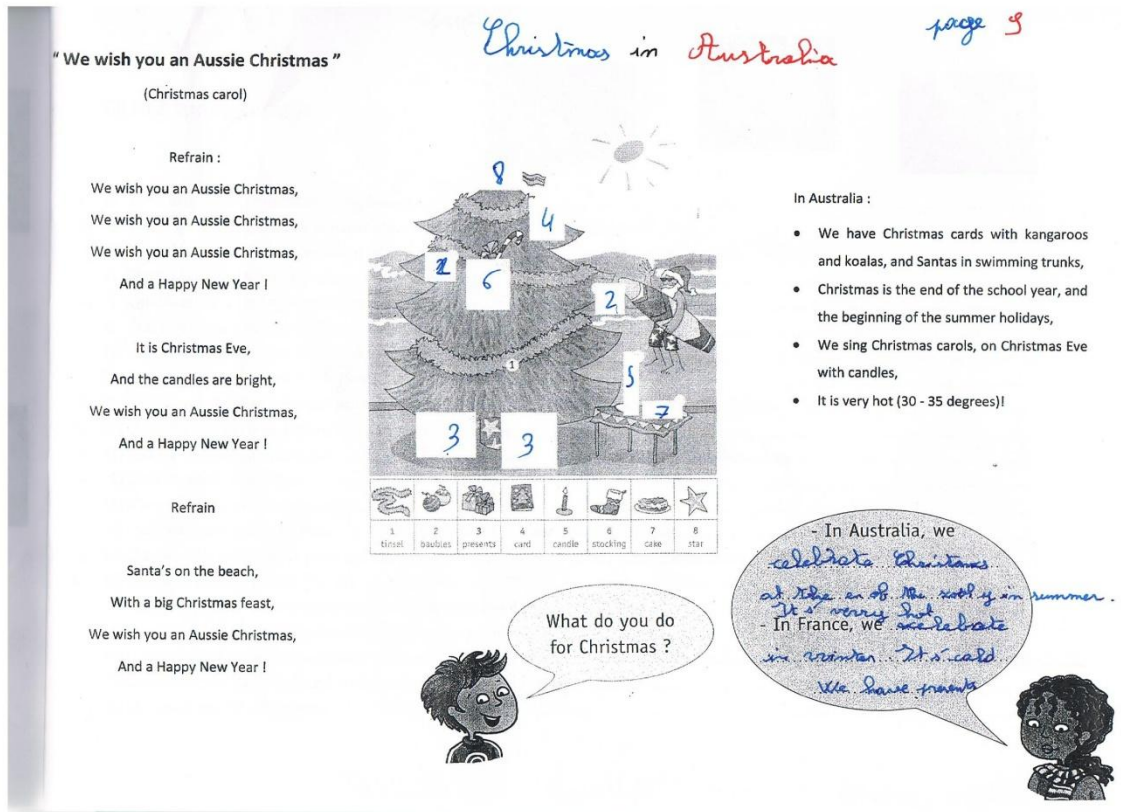 Christmas in Australia
page 9
" We wish you an Aussie Christmas "
(Christmas carol)
Refrain :
We wish you an Aussie Christmas,
We wish you an Aussie Christmas,
We wish you an Aussie Christmas,
And a Happy New Year !
It is Christmas Eve,
And the candles are bright,
We wish you an Aussie Christmas,
And a Happy New Year !
Refrain
Santa's on the beach,
With a big Christmas feast,
We wish you an Aussie Christmas,
And a Happy New Year !
8
4
6
2
1
5
7
3 3
1 2 3 4 5 6 7 8
tinsel baubles presents card candle stocking cake star
In Australia :
• We have Christmas cards with kangaroos
and koalas, and Santas in swimming trunks,
• Christmas is the end of the school year, and
the beginning of the summer holidays,
• We sing Christmas carols, on Christmas Eve
with candles,
• It is very hot (30 - 35 degrees)!
What do you do
for Christmas ?
- In Australia, we
celebrate Christams
at the en of the in summer.
It's verry hot
- In France, we celebrate
in winter. It's cald
We have presents